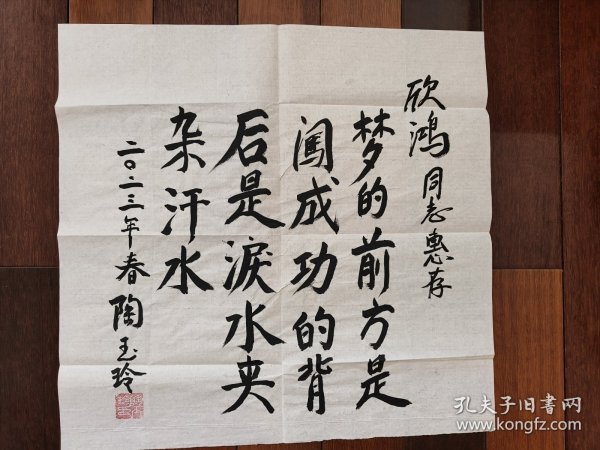 欣鸿同志惠存
梦的前方是
闯成功的背
后是淚水夹
杂汗水
二〇二三年春陶玉玲
孔夫子旧書网
www.kongfz.com